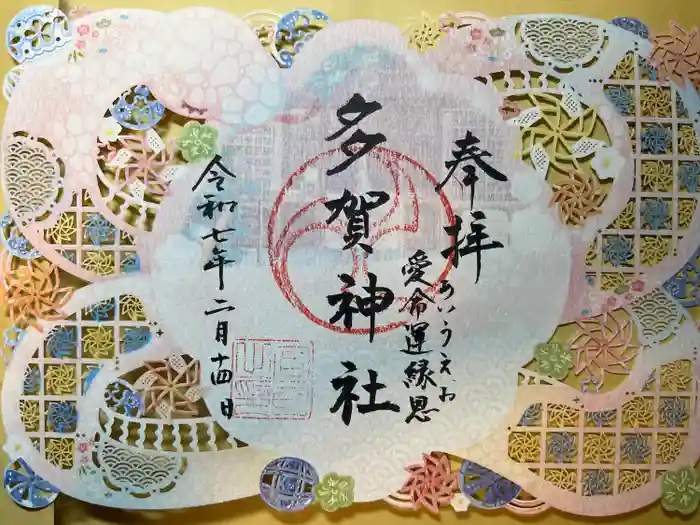 奉拝
愛命運縁恩
あいうえお
多賀神社
令和七年二月十四日